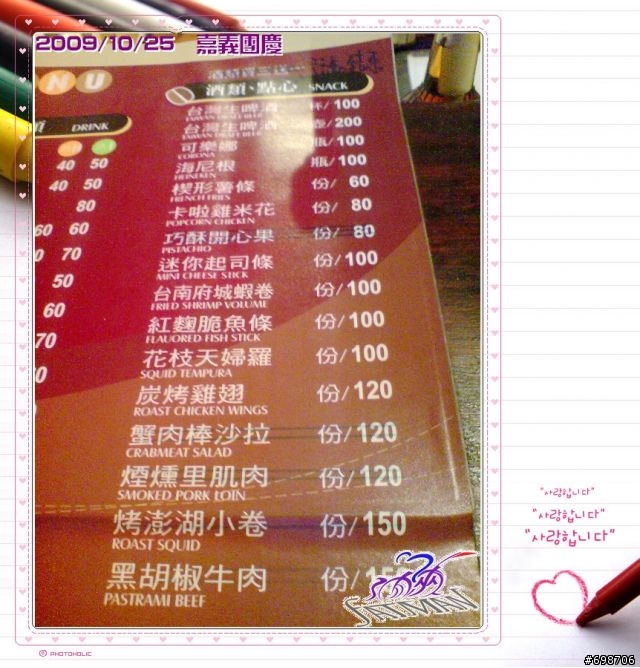 2009/10/25 嘉義團慶
NU
酒類、點心 SNACK
類 DRINK
台灣生啤酒 杯/100
TAIWAN DRAFT BEER
台灣生啤酒 壺/200
TAIWAN DRAFT BEER
可樂娜 瓶/100
CORONA
海尼根 瓶/100
HEINEKEN
40 50
楔形薯條 份/ 60
FRENCH FRIES
40 50
卡啦雞米花 份/ 80
POPCORN CHICKEN
80
巧酥開心果 份/ 80
PISTACHIO
60 60
迷你起司條 份/100
MINI CHEESE STICK
70
台南府城蝦卷 份/100
FRIED SHRIMP VOLUME
50
紅麴脆魚條 份/100
FLAUORED FISH STICK
60
花枝天婦羅 份/100
SQUID TEMPURA
70
炭烤雞翅 份/120
ROAST CHICKEN WINGS
蟹肉棒沙拉 份/120
CRABMEAT SALAD
煙燻里肌肉 份/120
SMOKED PORK LOIN
烤澎湖小卷 份/150
ROAST SQUID
黑胡椒牛肉 份/
PASTRAMI BEEF
"사랑합니다"
"사랑합니다"
"사랑합니다"
PHOTOHOLIC
#698706